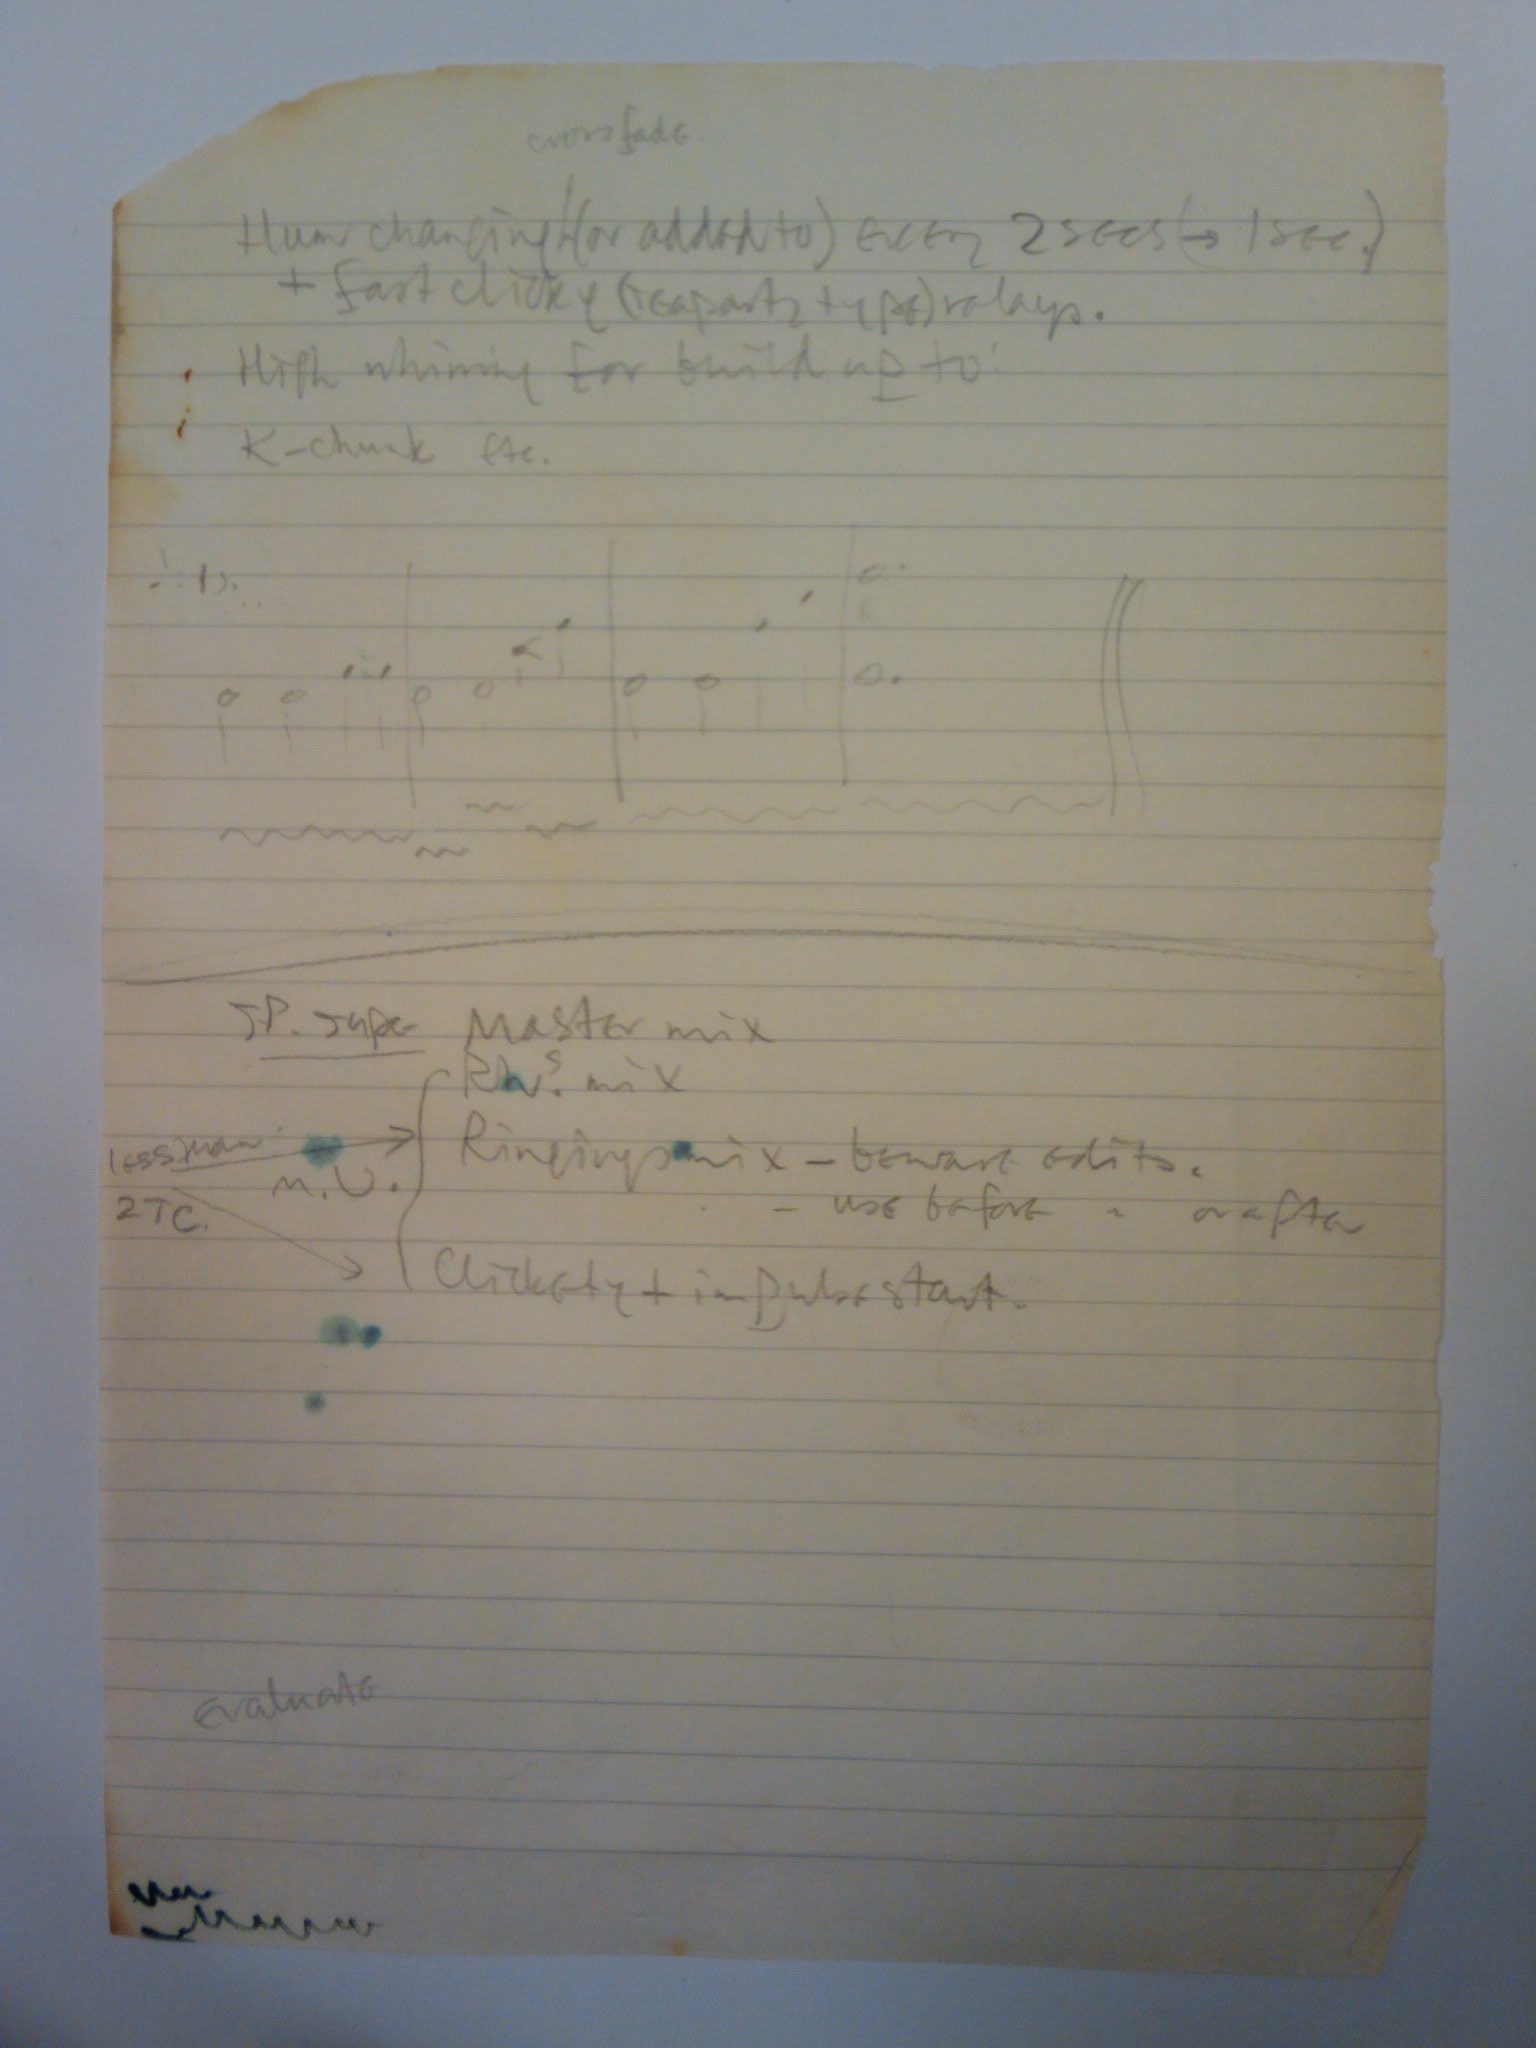 crossfade
Hum changing (or added to) every 2 secs (→ 1 sec.)
+ fast clicky (teaparty type) relays.
High whining for build up to
K-chunk etc.
SP. Tape Master mix
mix
Ringings mix - beware edits.
less than
M.U.
2TC.
- use before " or after
Clickety + impulse start.
evaluate